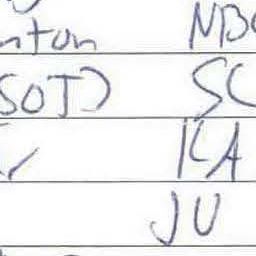 nton NBC
SOT) SC
KA
JU